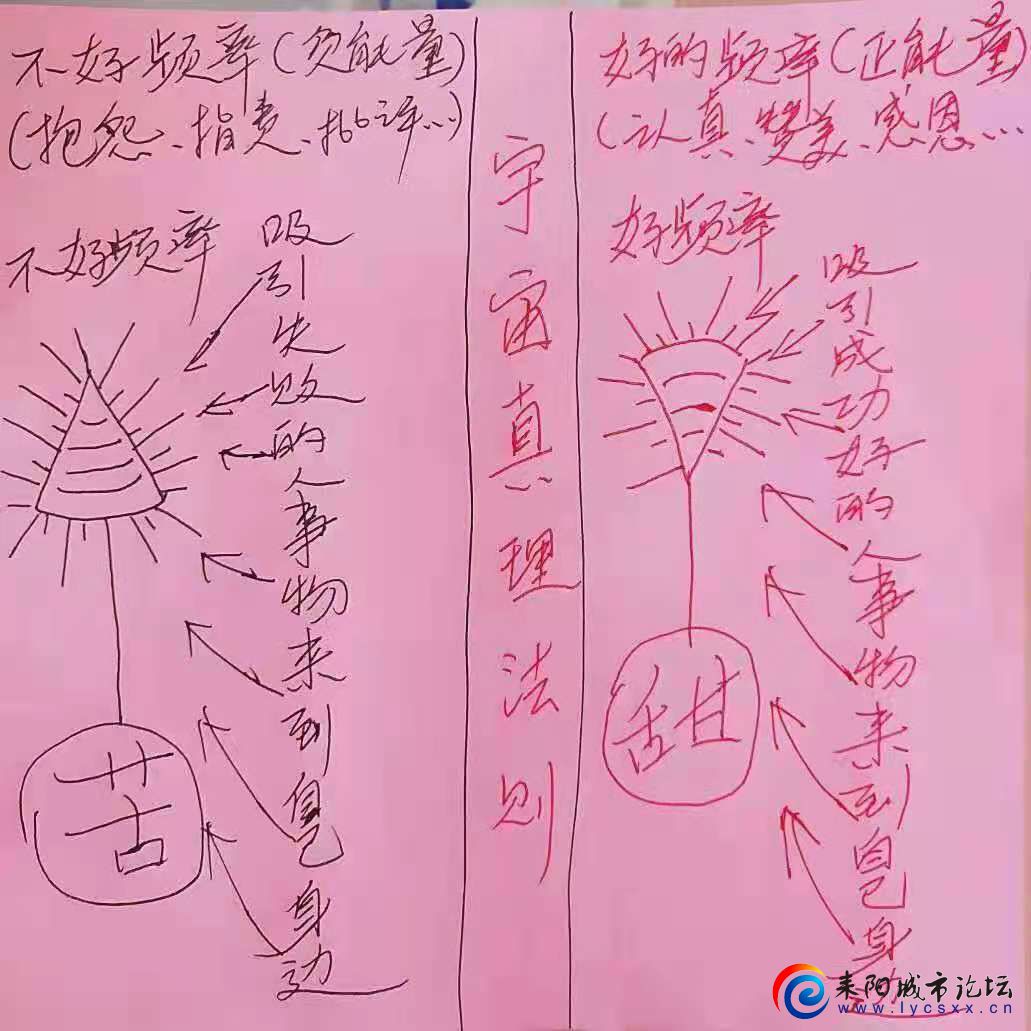 不好频率(负能量)
(抱怨、指责、批评...)
不好频率
吸引失败的人事物来到自己身边
苦
宇宙真理法则
好的频率(正能量)
(认真、赞美、感恩...
好频率
吸引成功好的人事物来到自己身边
甜
耒阳城市论坛
www.lycsxx.cn